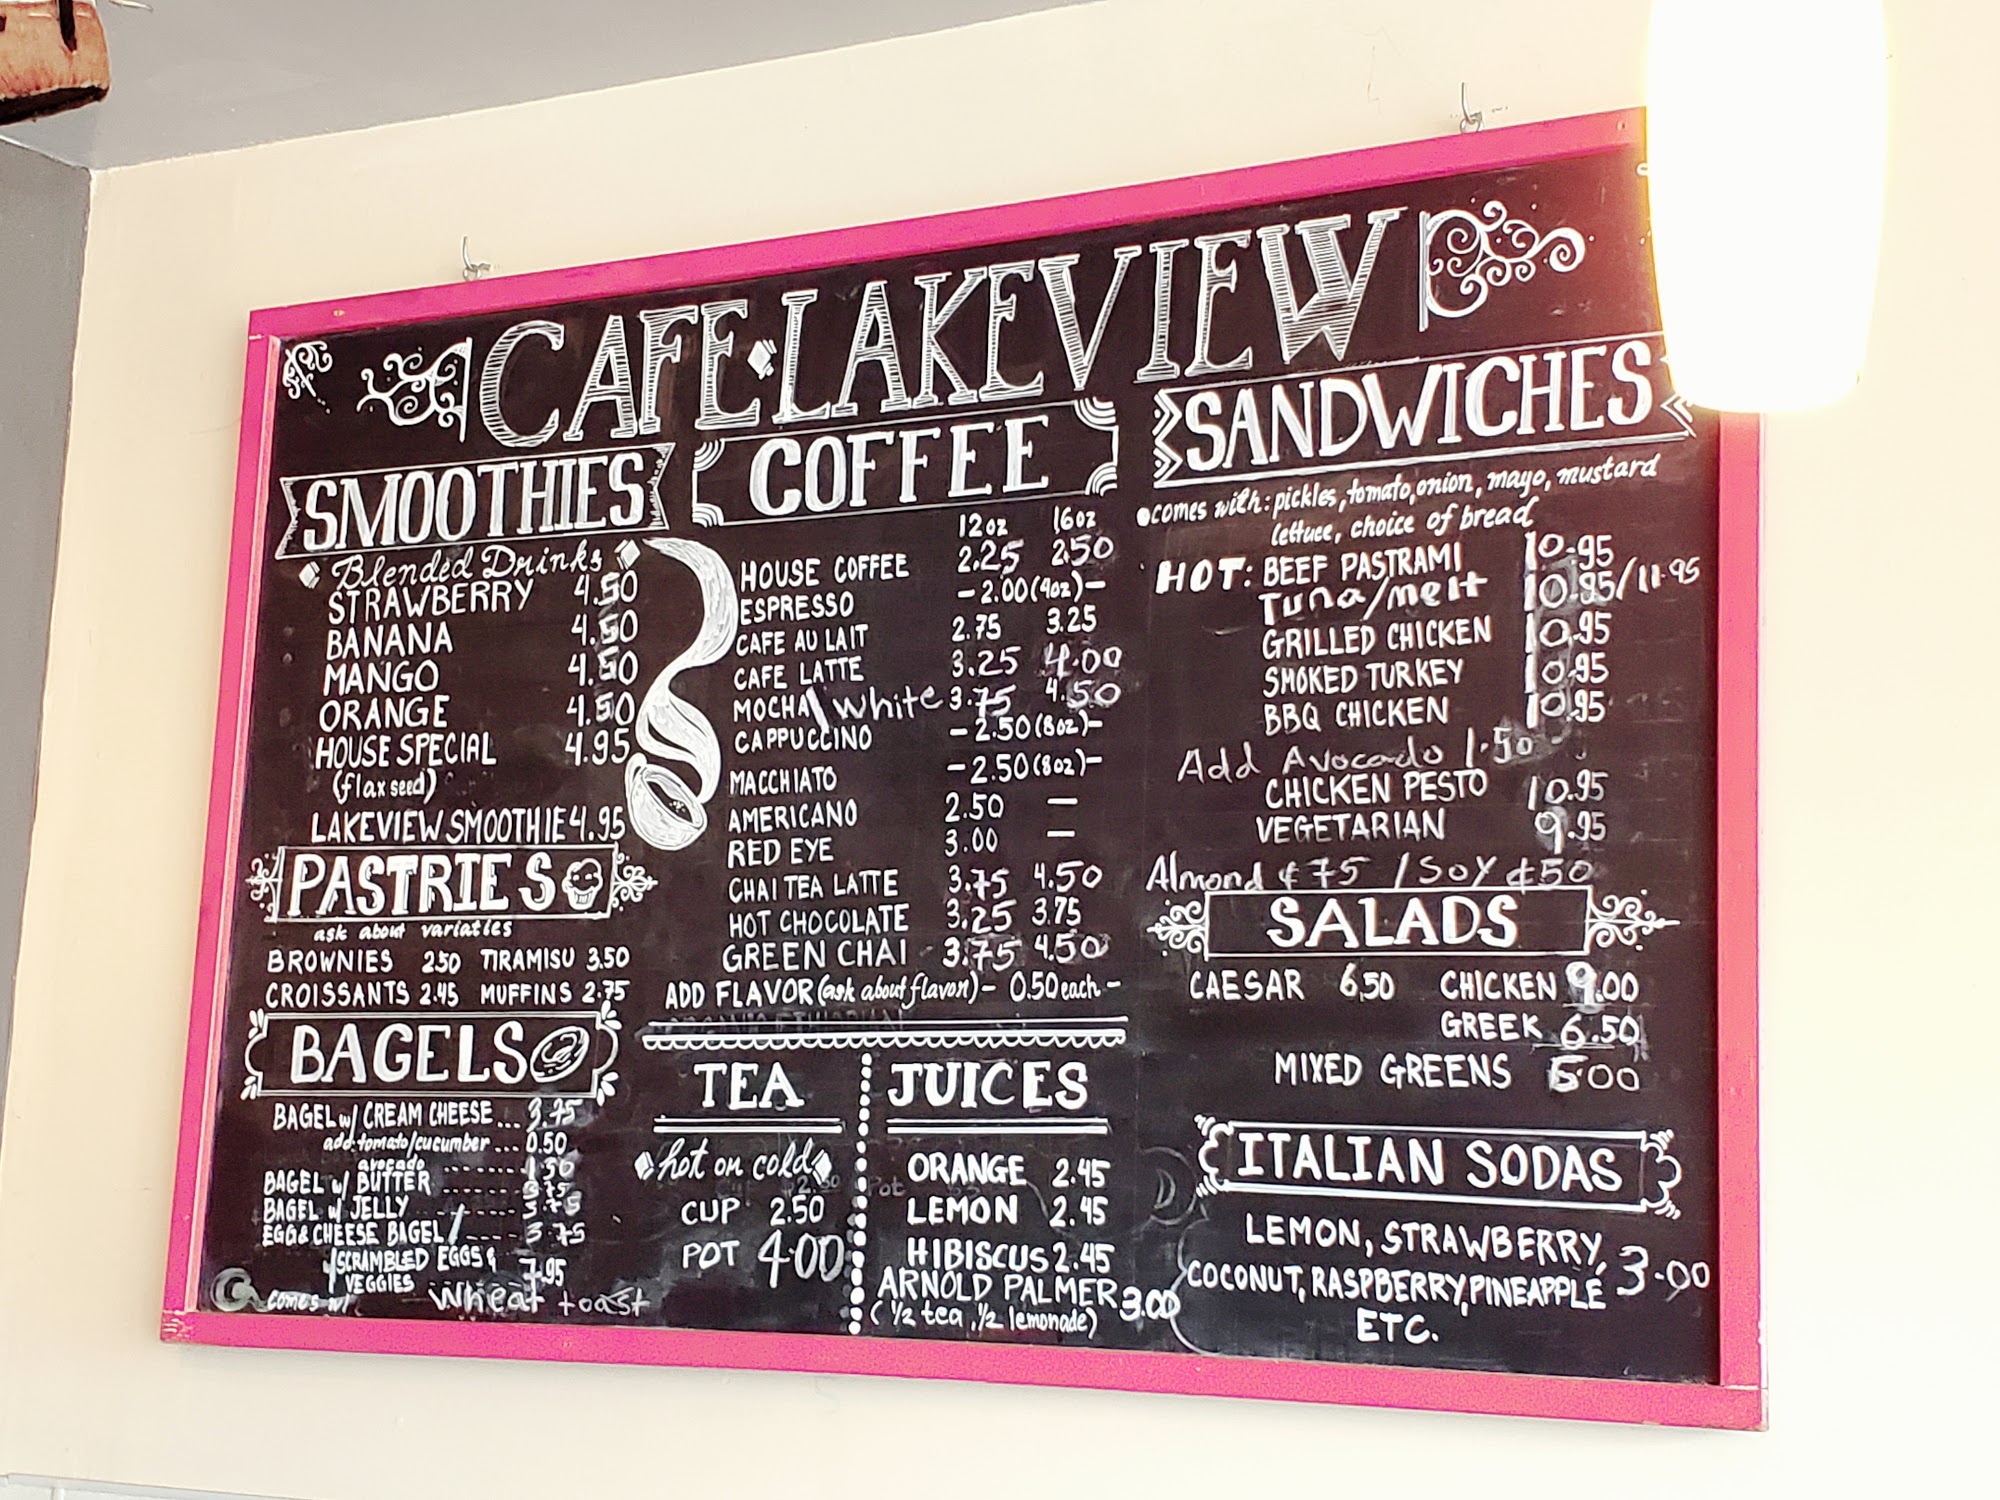 CAFE·LAKEVIEW
SMOOTHIES
Blended Drinks
STRAWBERRY 4.50
BANANA 4.50
MANGO 4.50
ORANGE 4.50
HOUSE SPECIAL 4.95
(flax seed)
LAKEVIEW SMOOTHIE 4.95
PASTRIES
ask about variaties
BROWNIES 2.50 TIRAMISU 3.50
CROISSANTS 2.45 MUFFINS 2.75
BAGELS
BAGEL w/ CREAM CHEESE ... 3.75
add tomato/cucumber ... 0.50
avocado ........ 1.50
BAGEL w/ BUTTER ....... 3.75
BAGEL w/ JELLY ........ 3.75
EGG & CHEESE BAGEL/ ---- 3.75
w/SCRAMBLED EGGS &
VEGGIES 7.95
comes w/ wheat toast
COFFEE
12oz 16oz
HOUSE COFFEE 2.25 2.50
ESPRESSO -2.00(4oz)-
CAFE AU LAIT 2.75 3.25
CAFE LATTE 3.25 4.00
MOCHA/White 3.75 4.50
CAPPUCCINO -2.50(8oz)-
MACCHIATO -2.50(8oz)-
AMERICANO 2.50 —
RED EYE 3.00 —
CHAI TEA LATTE 3.75 4.50
HOT CHOCOLATE 3.25 3.75
GREEN CHAI 3.75 4.50
ADD FLAVOR (ask about flavor) - 0.50 each -
TEA
hot or cold
CUP 2.50
POT 4.00
JUICES
ORANGE 2.45
LEMON 2.45
HIBISCUS 2.45
ARNOLD PALMER 3.00
(1/2 tea, 1/2 lemonade)
SANDWICHES
comes with: pickles, tomato, onion, mayo, mustard
lettuce, choice of bread
HOT: BEEF PASTRAMI 10.95
Tuna/melt 10.95/11.95
GRILLED CHICKEN 10.95
SMOKED TURKEY 10.95
BBQ CHICKEN 10.95
Add Avocado 1.50
CHICKEN PESTO 10.95
VEGETARIAN 9.95
Almond ¢75 / SOY ¢50
SALADS
CAESAR 6.50 CHICKEN 9.00
GREEK 6.50
MIXED GREENS 5.00
ITALIAN SODAS
LEMON, STRAWBERRY,
COCONUT, RASPBERRY, PINEAPPLE 3.00
ETC.